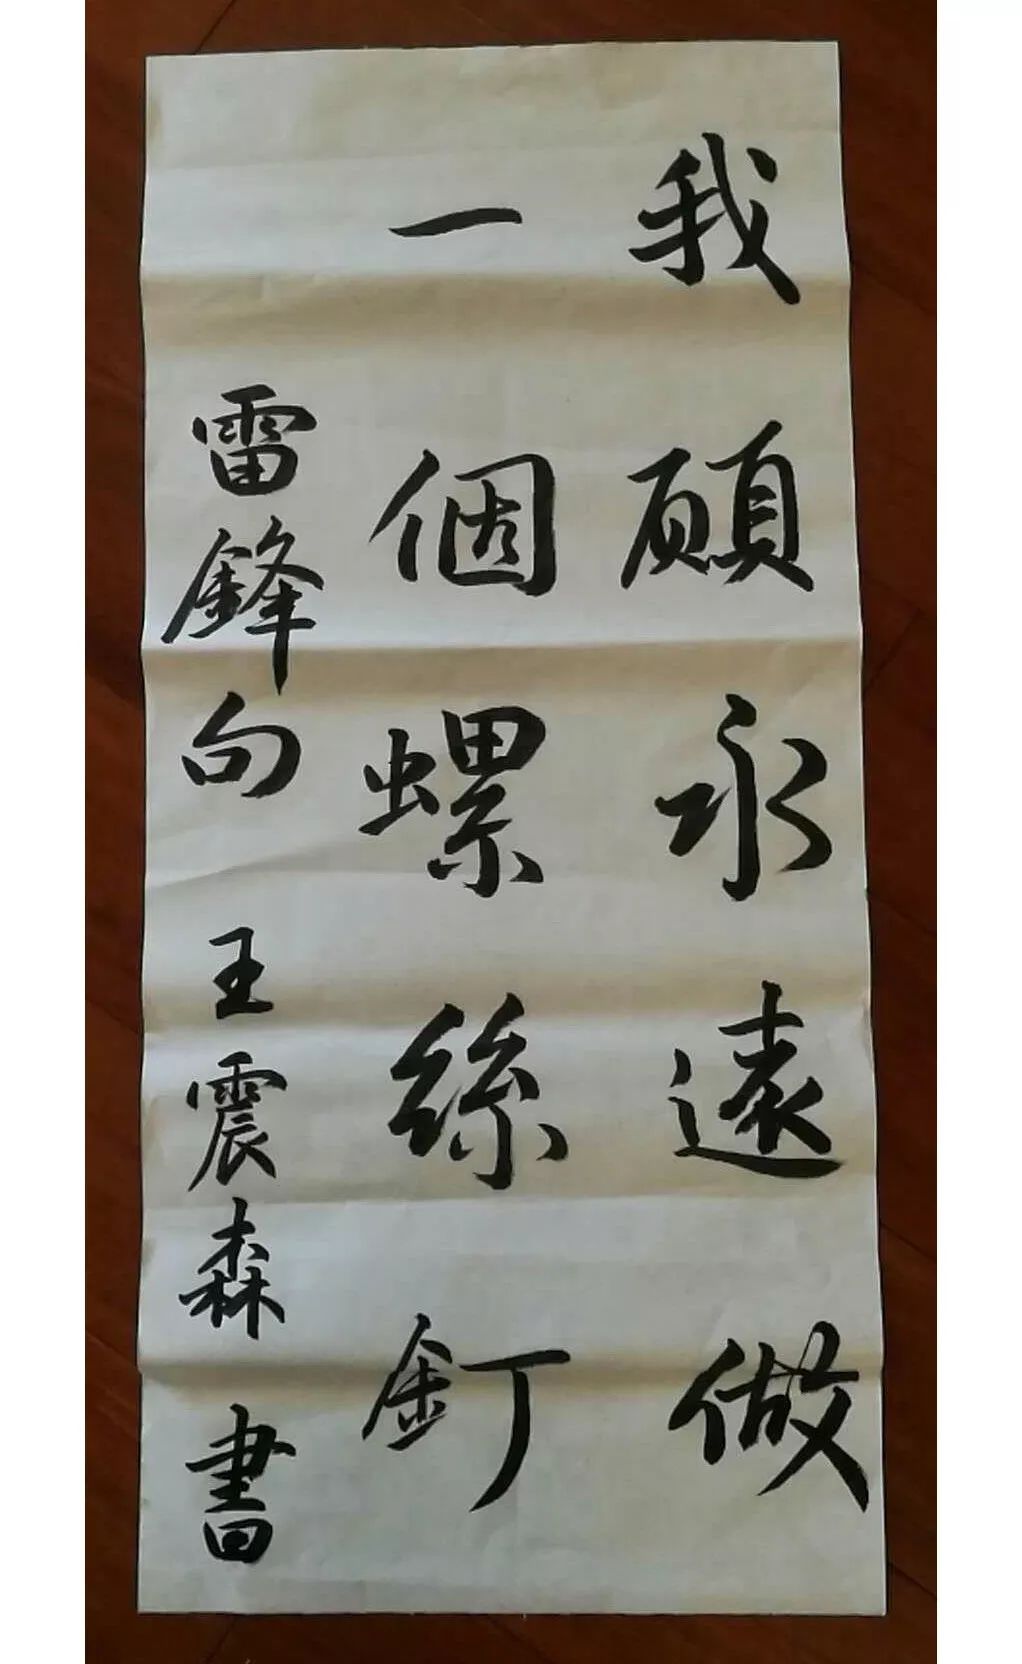 我願永遠做
一個螺絲釘
雷鋒句 王震森 書